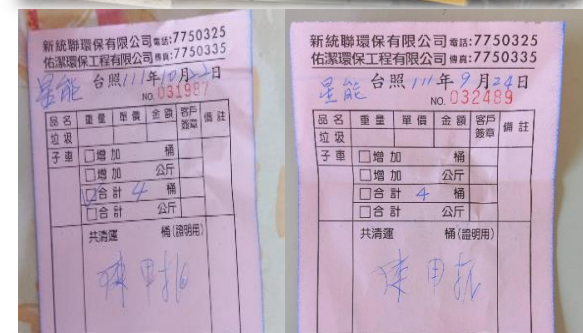 新統聯環保有限公司電話:7750325
佑潔環保工程有限公司傳真:7750335
星能 台照111年10月22日
NO. 031987
品名 重量 單價 金額 客戶簽章 備註
垃圾
子車 □增加 桶
□增加 公斤
□合計 4 桶
□合計 公斤
共清運 桶(證明用)
新統聯環保有限公司電話:7750325
佑潔環保工程有限公司傳真:7750335
星能 台照111年9月24日
NO. 032489
品名 重量 單價 金額 客戶簽章 備註
垃圾
子車 □增加 桶
□增加 公斤
□合計 4 桶
□合計 公斤
共清運 桶(證明用)